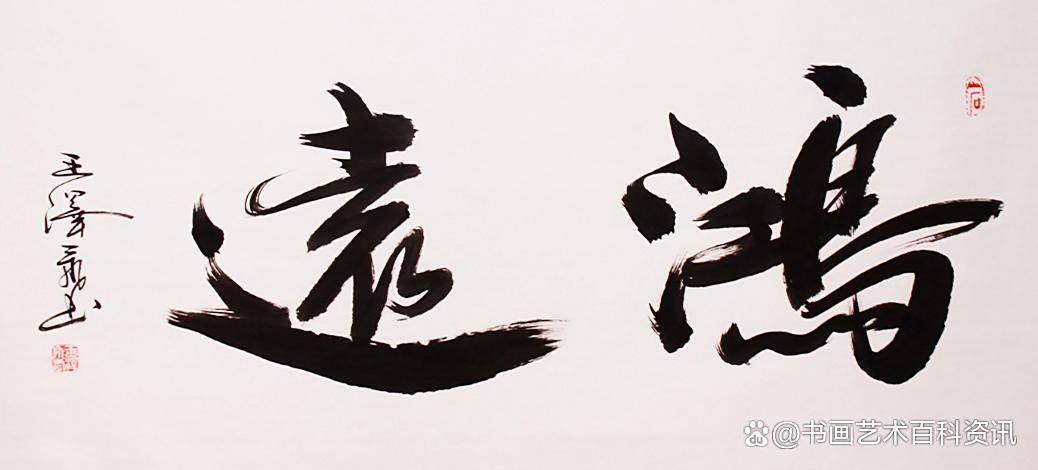 鴻遠
王澤飛書
@书画艺术百科资讯